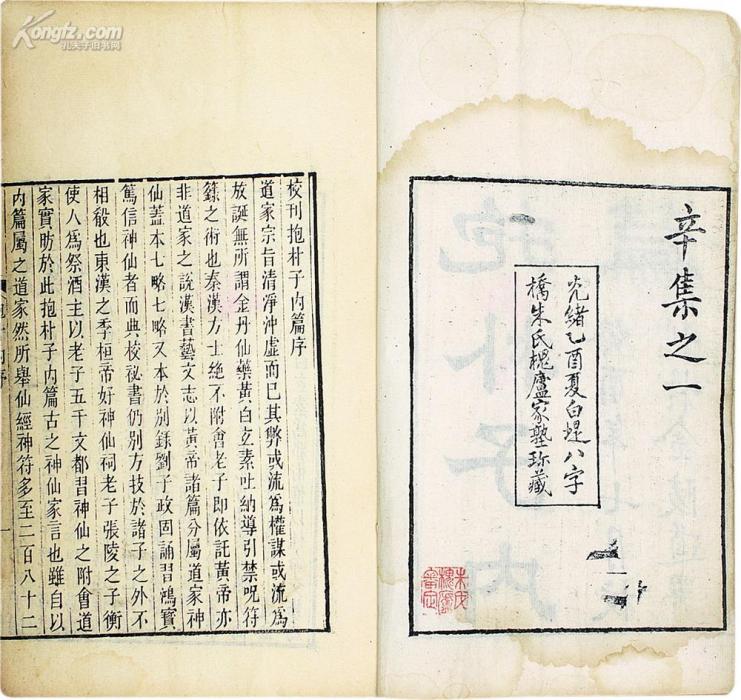 Kongfz.com
孔夫子旧书网
辛集之一
光緒乙酉夏白堤八字
橋朱氏槐廬家塾珍藏
校刊抱朴子內篇序
道家宗旨清淨沖虛而已其弊或流爲權謀或流爲
放誕無所謂金丹仙藥黃白玄素吐納導引禁呪符
籙之術也秦漢方士絶不附會老子即依託黃帝亦
非道家之說漢書藝文志以黃帝諸篇分屬道家神
仙蓋本七略七略又本於別錄劉子政固誦習鴻寶
篤信神仙者而典校祕書仍別方技於諸子之外不
相殽也東漢之季桓帝好神仙祠老子張陵之子衡
使人爲祭酒主以老子五千文都習神仙之附會道
家實昉於此抱朴子內篇古之神仙家言也雖自以
內篇屬之道家然所舉仙經神符多至二百八十二
一